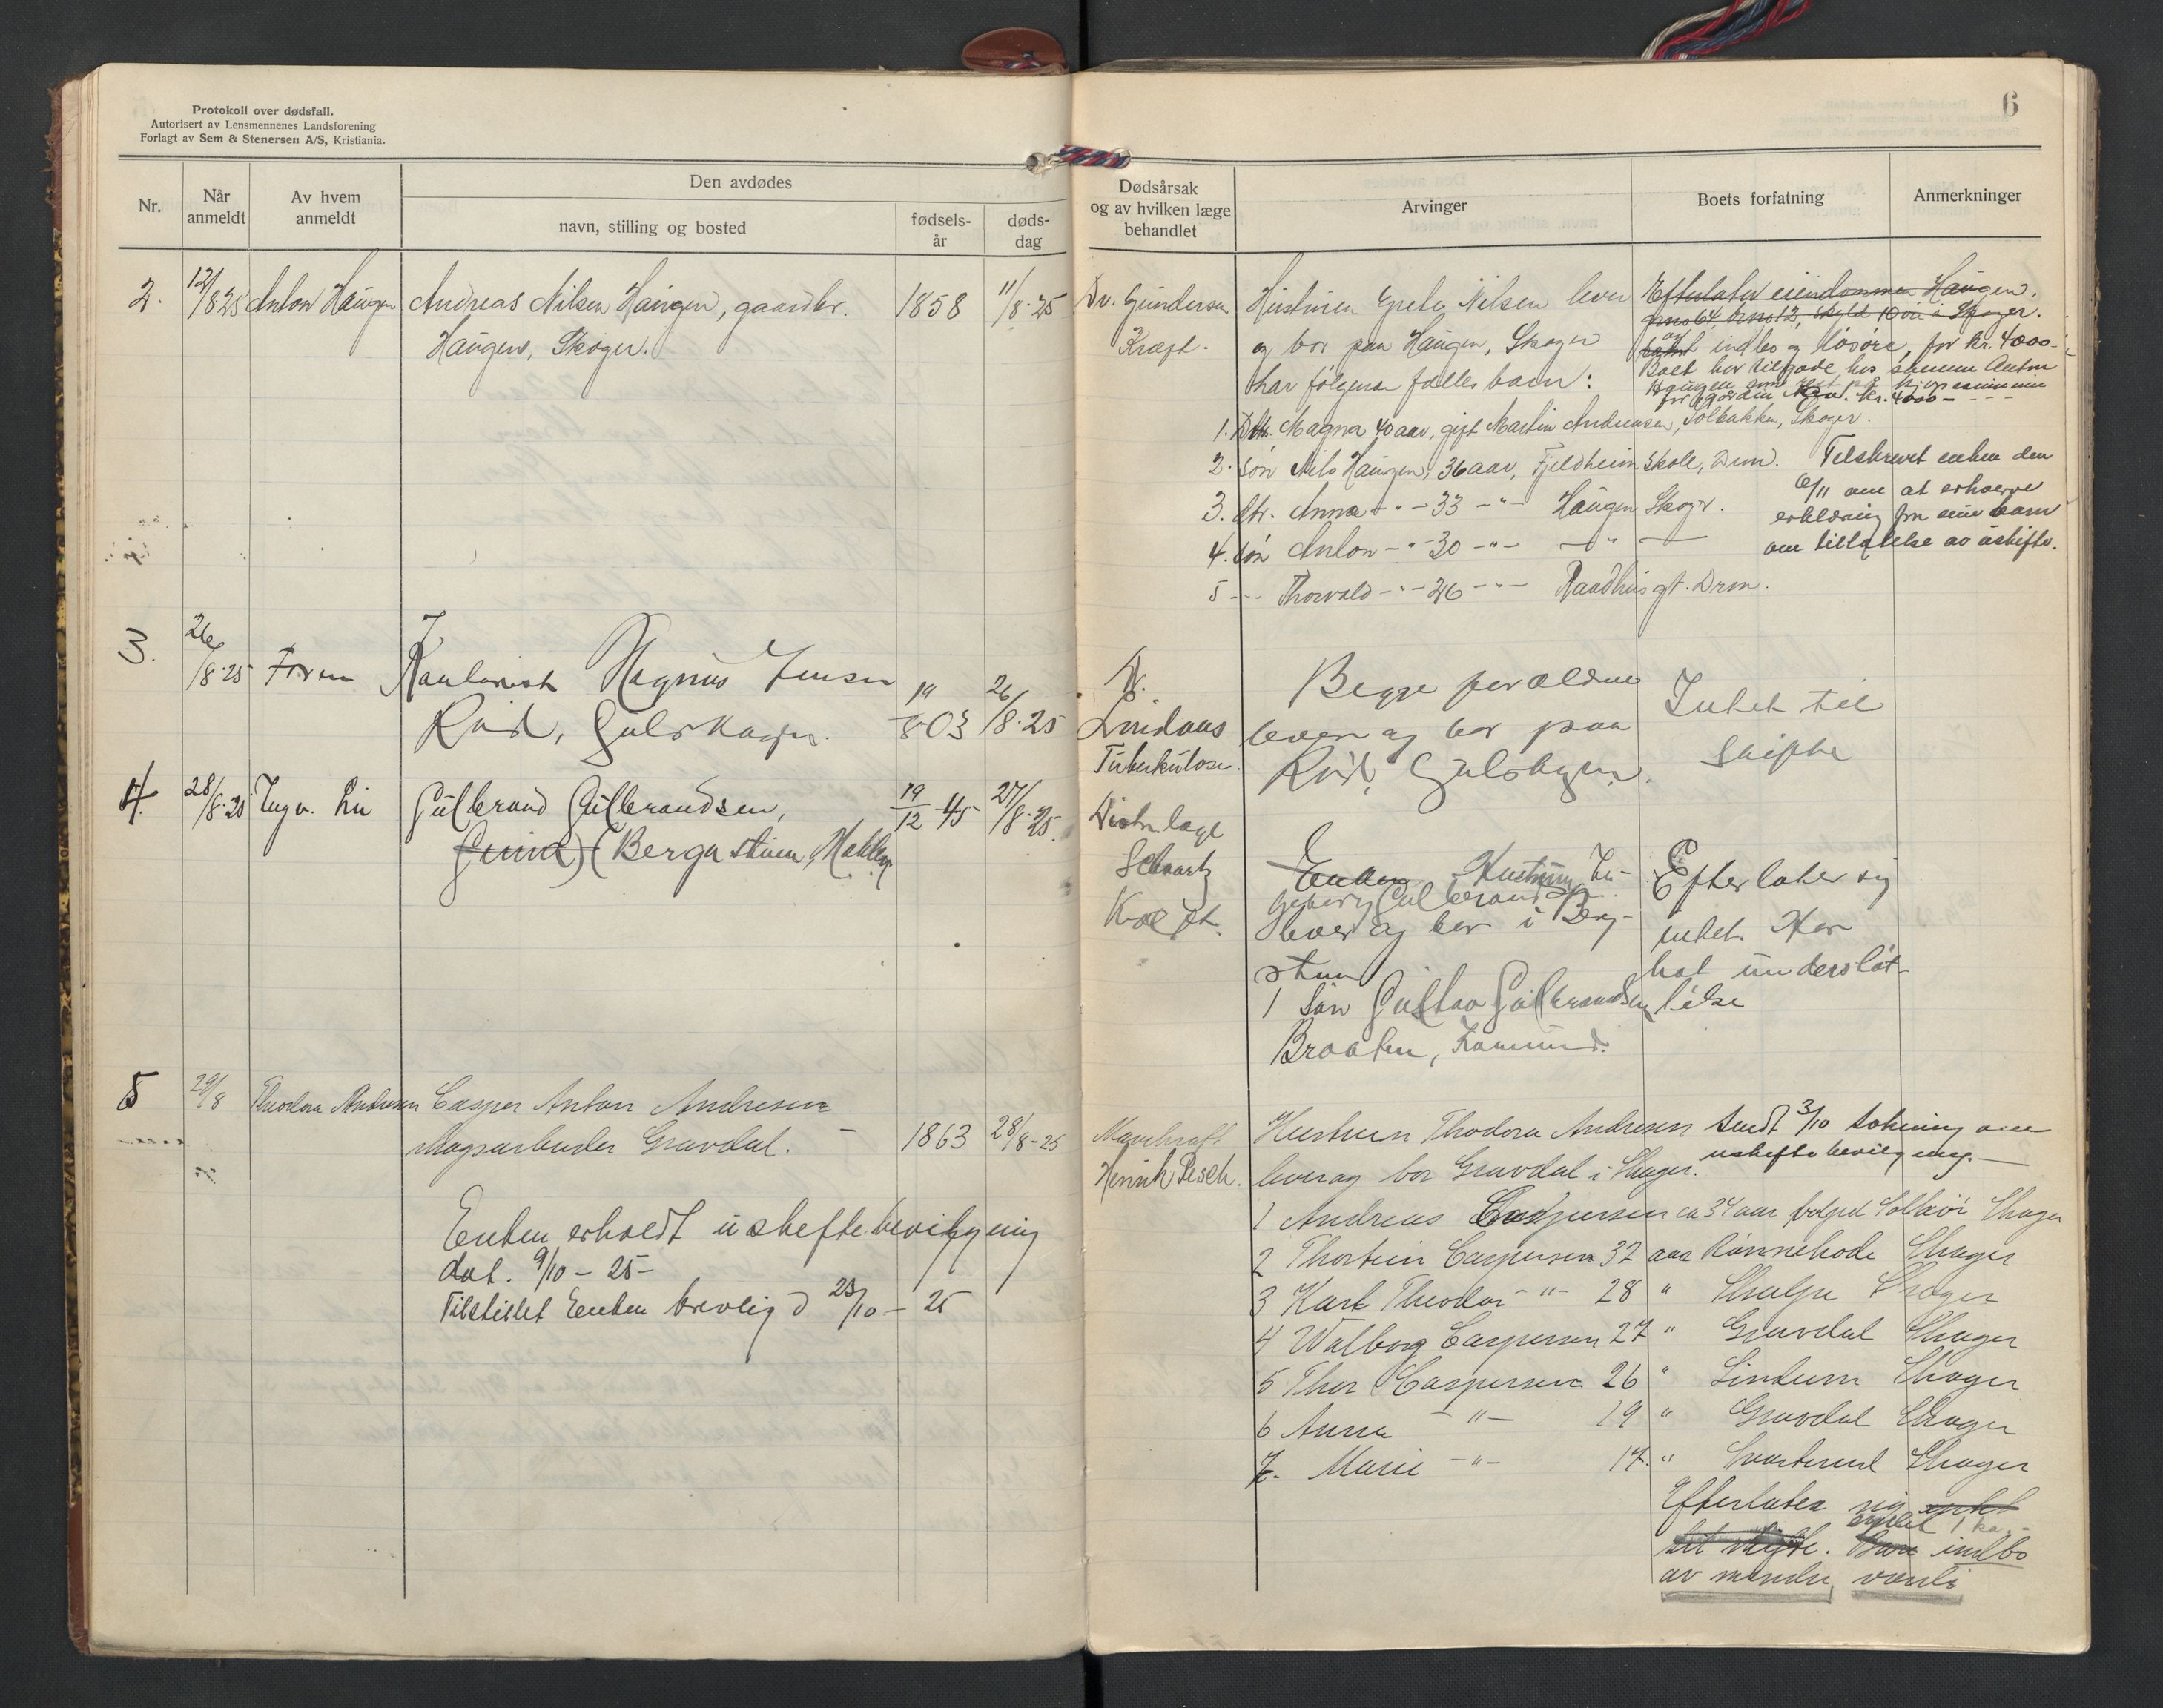 Protokoll over dødsfall.
Autorisert av Lensmennenes Landsforening
Forlagt av Sem & Stenersen A/S, Kristiania.
6
Nr.
Når anmeldt
Av hvem anmeldt
Den avdødes
navn, stilling og bosted
fødsels-år
døds-dag
Dødsårsak og av hvilken læge behandlet
Arvinger
Boets forfatning
Anmerkninger
2. 12/8 25 Anton Haugen Andreas Nilsen Haugen, gaardbr. 1858 11/8-25
Haugen, Skoger.
Dr. Gundersen
Kræft.
Hustruen Grete Nilsen lever
og bor paa Haugen, Skoger
har følgende fælles barn:
1. Dtr. Magna 40 aar, gift Martin Andersen, Solbakken, Skoger.
2. søn Nils Haugen, 36 aar, Fjeldheim Skole, Drm.
3. dtr. Anna -"- 33 -"- Haugen Skoger.
4. søn Anton -"- 30 -"- -"-
5 -"- Thorvald -"- 26 -"- Raadhusgt. Drm.
Efterlater eiendommen Haugen,
gno 64, bno 12, skyld 10 øre i Skoger.
og indbo og løsøre, for kr. 4000.-
Boet har tilgode hos sønnen Anton
Haugen som rest på kjøpesummen
for gården kr. 4000 -
Tilskrevet enken den
6/11 om at erhverve
erklæring fra sine barn
om tillatelse av uskifte.
3. 26/8-25 Faren Kontorist Magnus Jensen
Kvid, Gulskogen. 19/8-03 26/8-25
Dr.
Lindaas
Tuberkulose.
Begge forældrene
lever og bor paa
Kvid, Gulskogen.
Intet til
skifte
4. 28/8-25 Ingv. Lie Gulbrand Gulbrandsen, 19/12 45 27/8-25.
(Bergastuen, Hakken
Distr. læge
Schwartz
Kræft.
Enken Hustru In-
geborg Gulbrandsen
lever og bor i Berg-
stuen
1 Søn Gustav Gulbrandsen
Braaten, Konnerud.
Efterlater sig
intet. Har
hat understøt-
telse
5 29/8 Theodora Andresen Casper Anton Andresen
skogsarbeider Gravdal. - 1863 28/8-25
Marekraft
Henrik Pesch.
Hustruen Theodora Andresen
lever og bor Gravdal i Skoger.
Sendt 3/10 søkning om
uskiftebevilgning.-
1 Andreas Caspersen ca 34 aar Skoger
2 Thorstein Caspersen 32 aar Rønnehode Skoger
3 Karl Theodor -"- 28 " Skalpe Skoger
4 Walborg Caspersen 27 " Gravdal Skoger
5 Thor Caspersen 26 " Lindum Skoger
6 Anna -"- 19 " Gravdal Skoger
7. Marie -"- 17. " Svarterud Skoger
Efterlater sig intet
til skifte. Bare indbo
av mindre værdi
Enken erholdt uskiftebevilgning
dat. 9/10 - 25 -
Tilstillet Enken bevilg d 23/10 - 25